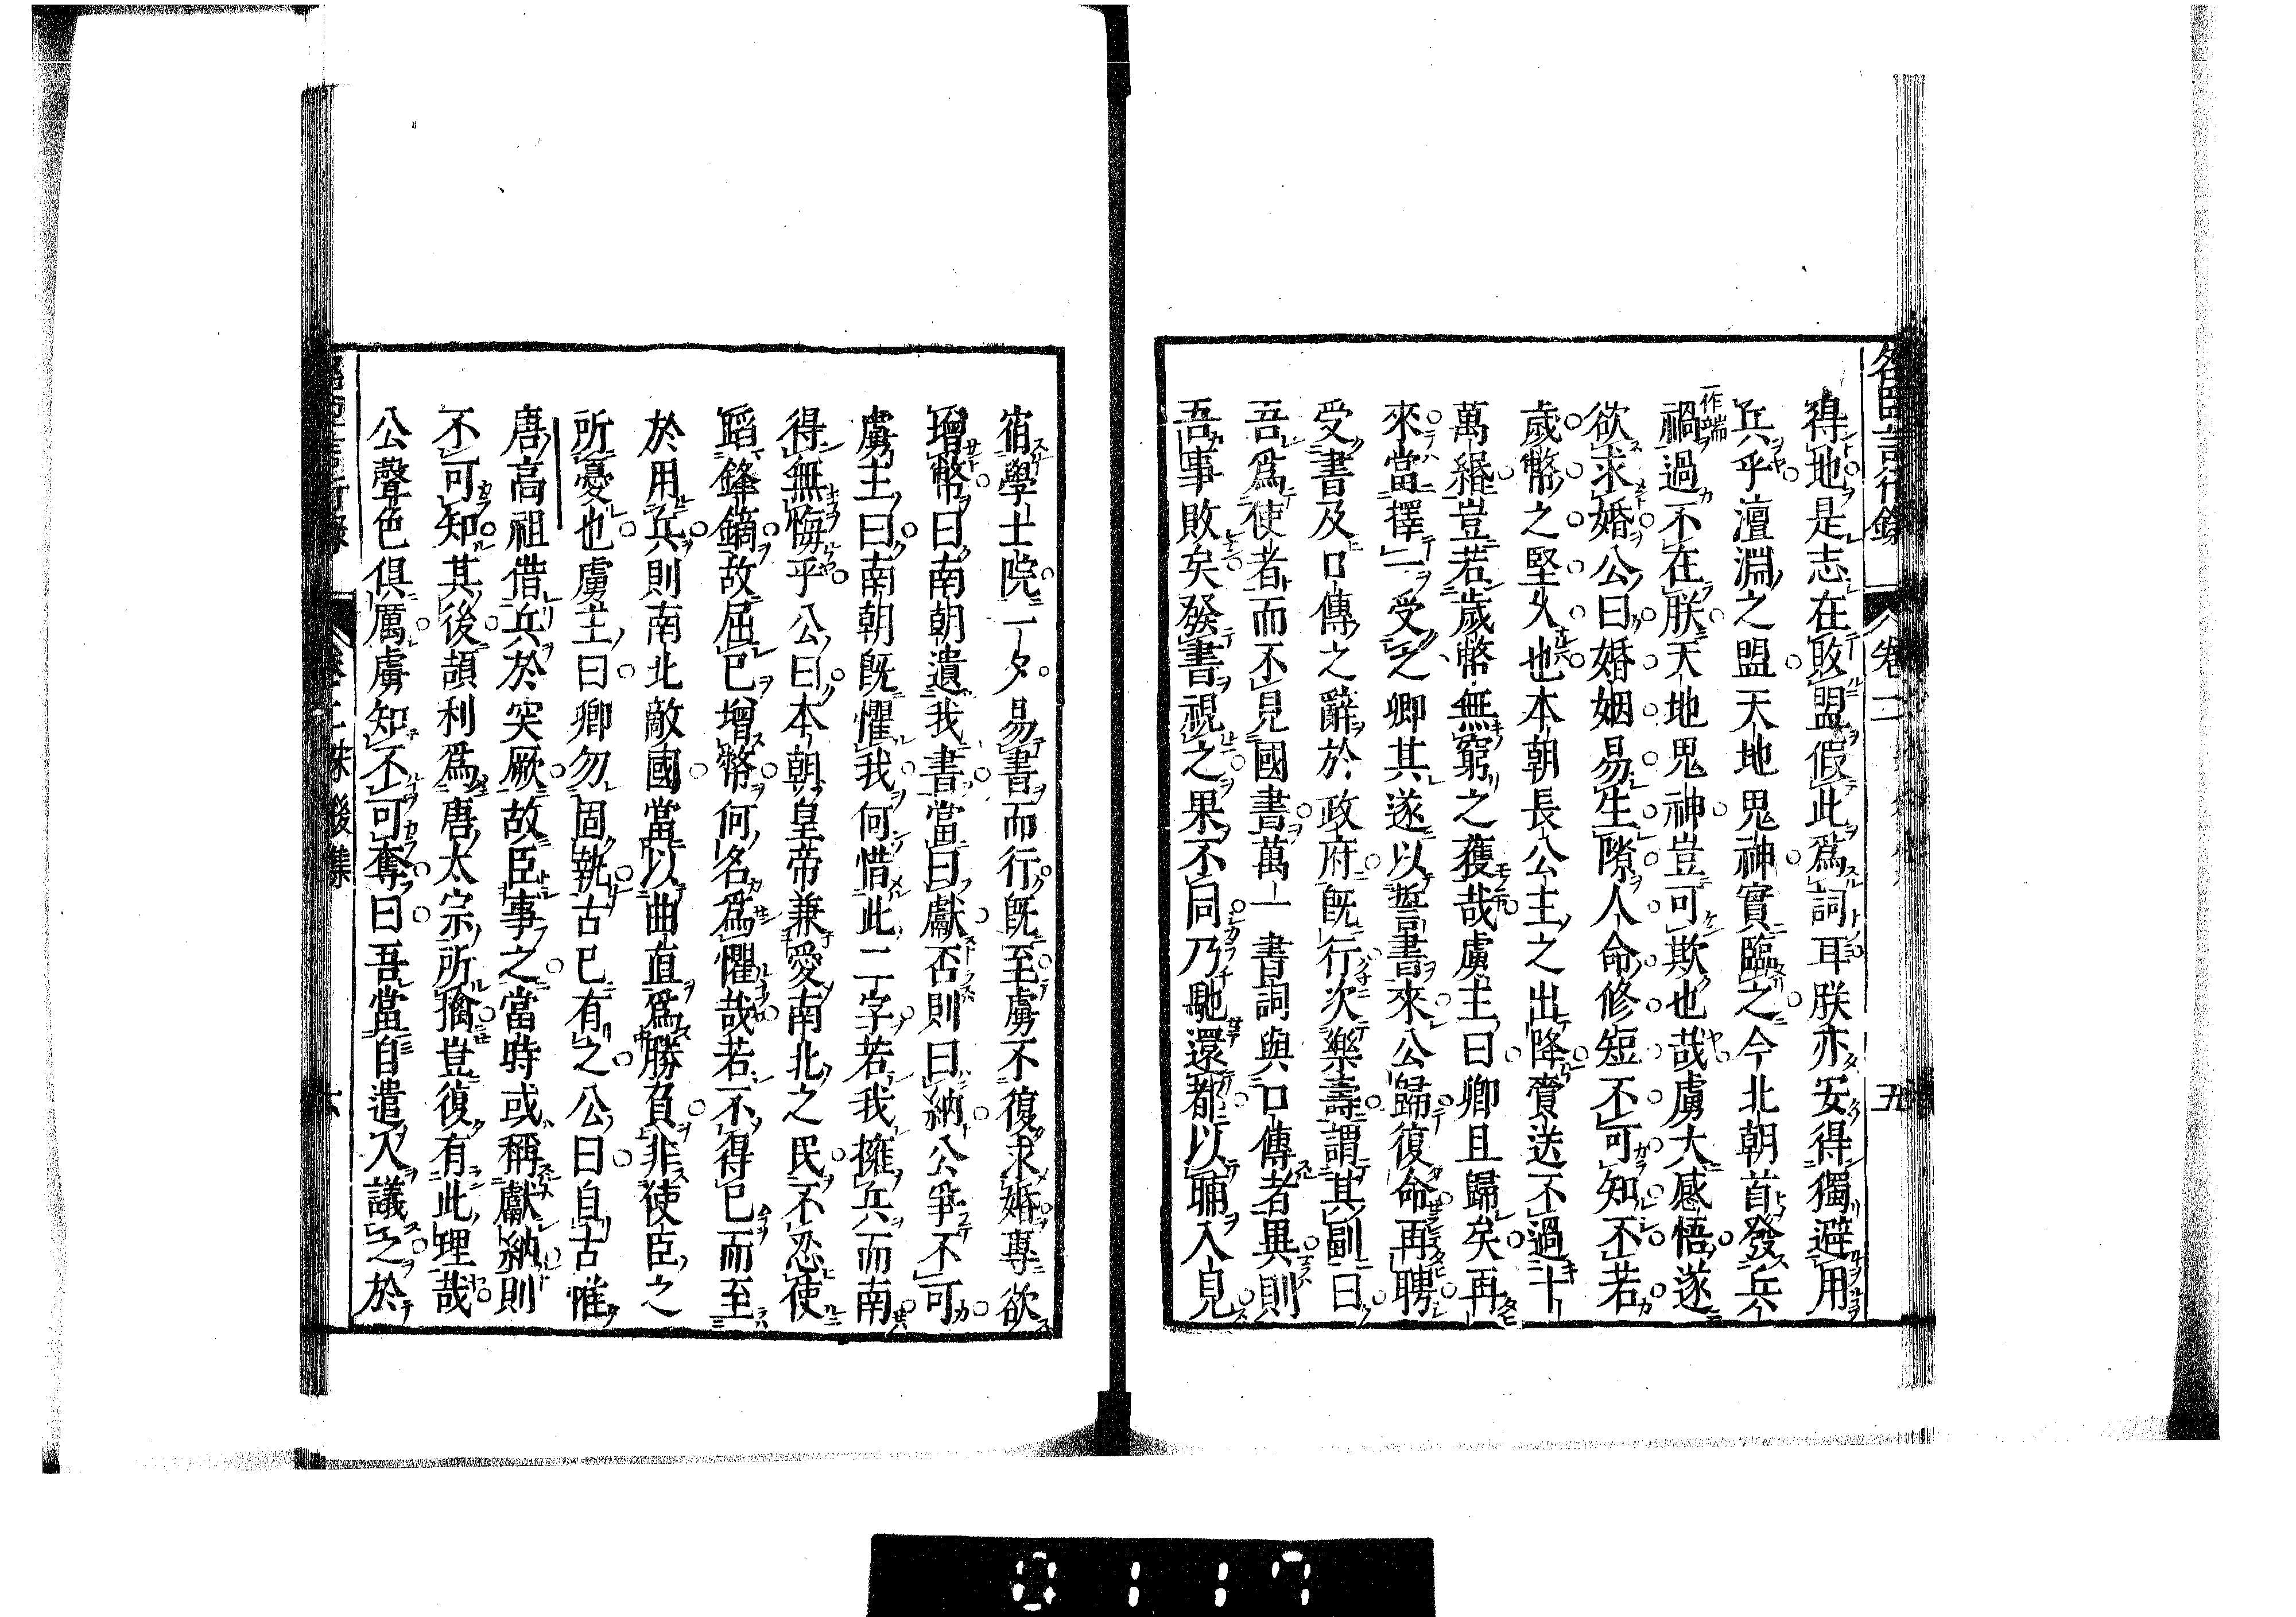 名臣言行錄 卷二 五
得地是志在敗盟假此爲詞耳朕亦安得獨避用
兵乎澶淵之盟天地鬼神實臨之今北朝首發兵
一作端
禍過不在朕天地鬼神豈可欺也哉虜大感悟遂
欲求婚公曰婚姻易生隙人命修短不可知不若
歲幣之堅久也本朝長公主之出降賚送不過十
萬緡豈若歲幣無窮之獲哉虜主曰卿且歸矣再
來當擇一受之卿其遂以誓書來公歸復命再聘
受書及口傳之辭於政府既行次樂壽謂其副曰
吾爲使者而不見國書萬一書詞與口傳者異則
吾事敗矣發書視之果不同乃馳還都以晡入見
宿學士院一夕易書而行既至虜不復求婚專欲
增幣曰南朝遺我書當曰獻否則曰納公爭不可
虜主曰南朝既懼我何惜此二字若我擁兵而南
得無悔乎公曰本朝皇帝兼愛南北之民不忍使
蹈鋒鏑故屈已增幣何名爲懼哉若不得已而至
於用兵則南北敵國當以曲直爲勝負非使臣之
所憂也虜主曰卿勿固執古已有之公曰自古惟
唐高祖借兵於突厥故臣事之當時或稱獻納則
不可知其後頡利爲唐太宗所擒豈復有此理哉
公聲色俱厲虜知不可奪曰吾當自遣人議之於
0117